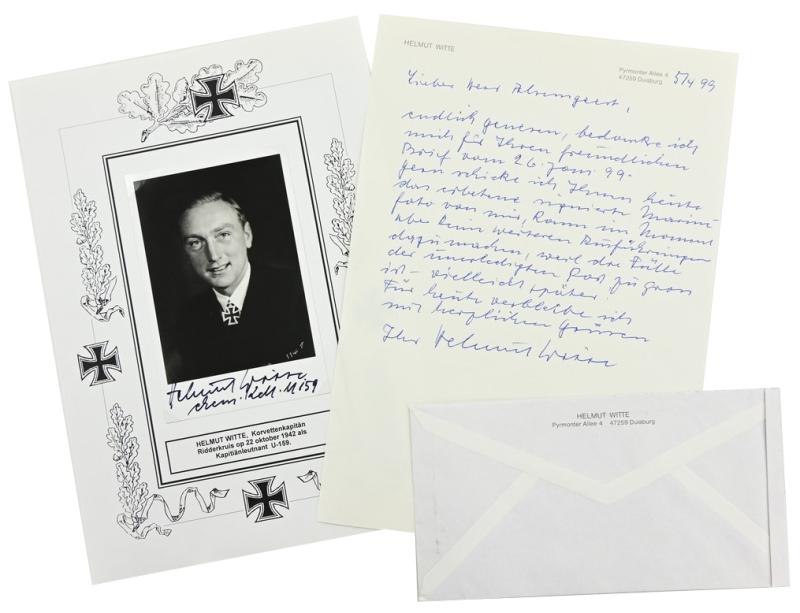 Helmut Witte
ehem. Kdt. U 159
HELMUT WITTE, Korvettenkapitän
Ridderkruis op 22 oktober 1942 als
Kapitiänleutnant U-159.
HELMUT WITTE
Pyrmonter Allee 4
47259 Duisburg
5/4 99
Lieber Herr
endlich genesen, bedanke ich
mich für Ihren freundlichen
Brief vom 26. Jan. 99.
gern schicke ich Ihnen heute
das erbetene signierte Marine-
foto von mir, kann im Moment
aber keine weiteren Ausführungen
dazu machen, weil die Fülle
der unerledigten Post zu gross
ist - vielleicht später.
Für heute verbleibe ich
mit herzlichen Grüssen
Ihr Helmut Witte
HELMUT WITTE
Pyrmonter Allee 4 47259 Duisburg